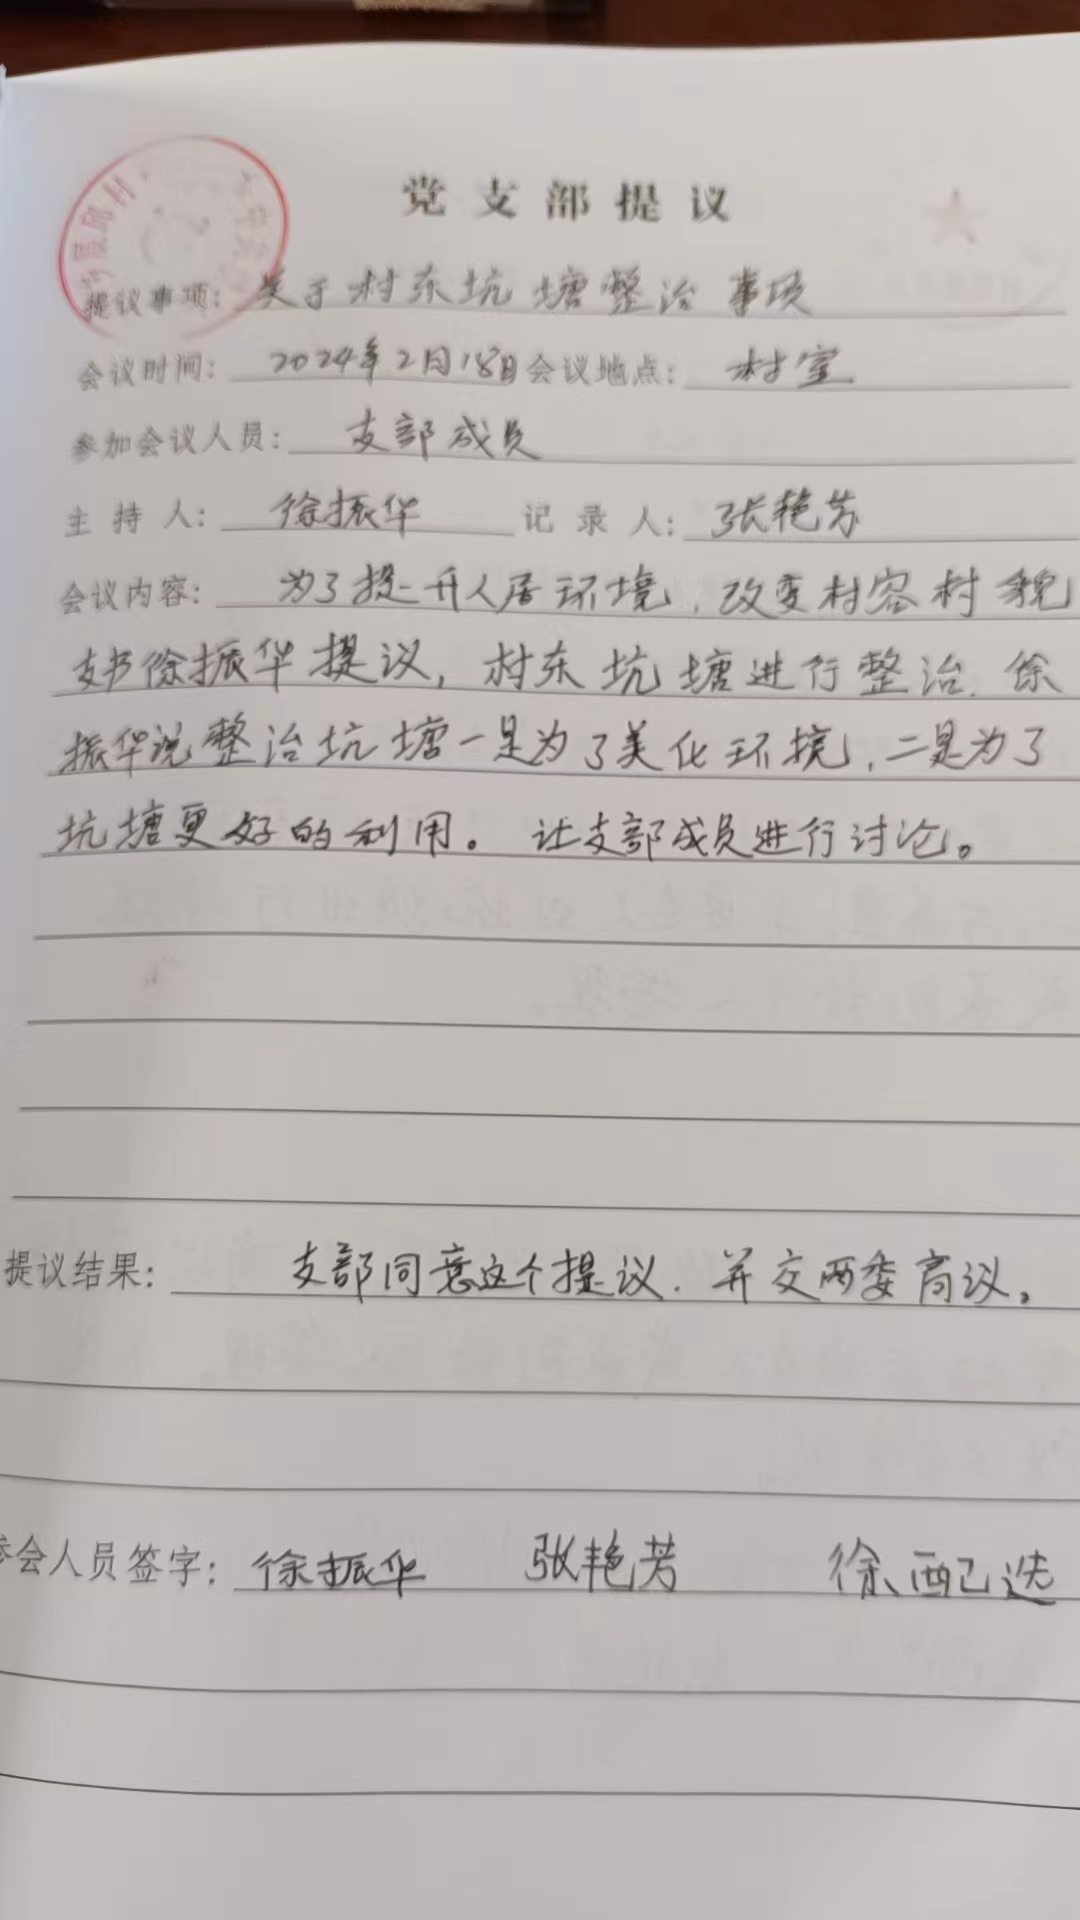 党支部提议
提议事项: 关于村东坑塘整治事项
会议时间: 2024年2月18日 会议地点: 村室
参加会议人员: 支部成员
主持人: 徐振华 记录人: 张艳芳
会议内容: 为了提升人居环境，改变村容村貌
支书徐振华提议，村东坑塘进行整治.徐
振华说整治坑塘一是为了美化环境，二是为了
坑塘更好的利用。让支部成员进行讨论。
提议结果: 支部同意这个提议.并交两委商议。
参会人员签字: 徐振华 张艳芳 徐配选